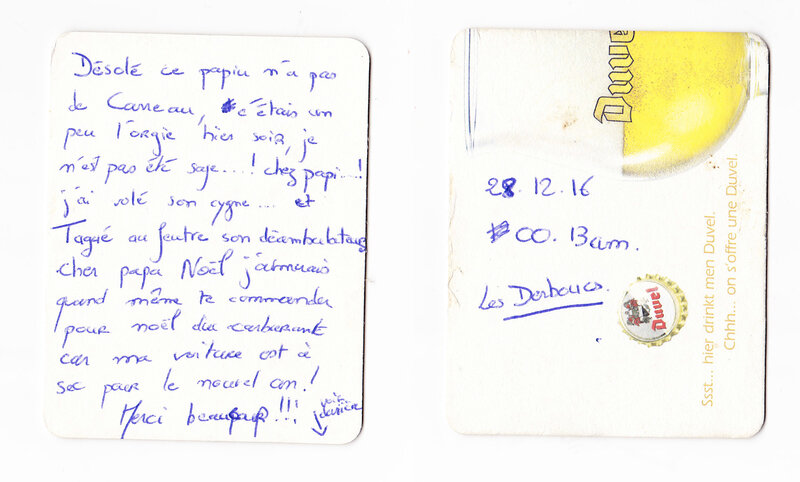 Désolé ce papiu n'a pas
de Carreau, c'étais un
peu l'orgie hier soir, je
n'est pas été sage....! chez papi...!
j'ai volé son cygne.... et
Taggé au feutre son déambulateur
cher papa Noël j'aimerais
quand même te commander
pour noël du carburant
car ma voiture est à
sec pour le nouvel an!
Merci beaucoup!!! voir
derrière
Duvel
28.12.16
00.13am.
Les
Duvel
Ssst... hier drinkt men Duvel.
Chhh... on s'offre une Duvel.